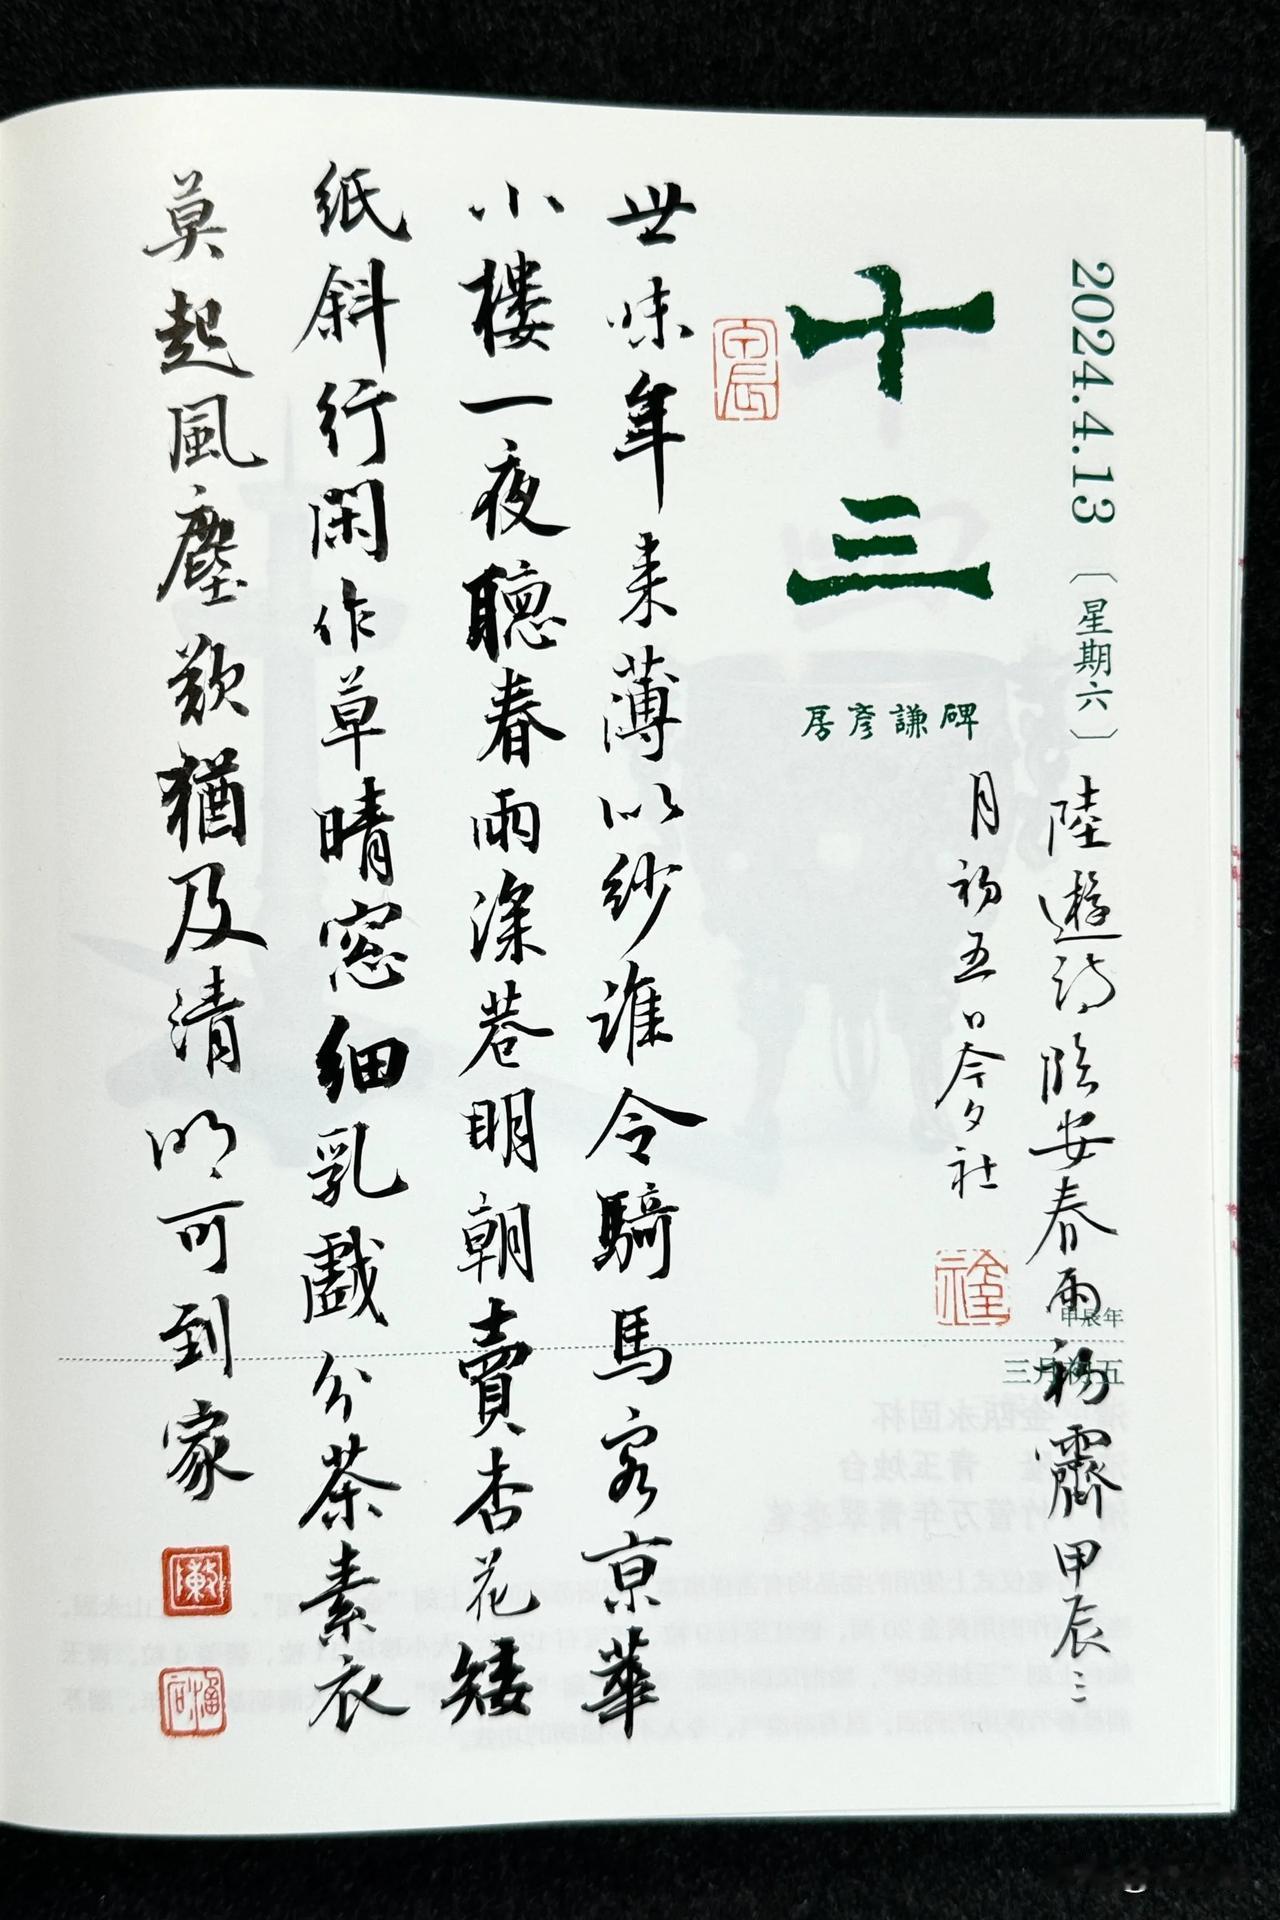 2024.4.13〔星期六〕
十三
房彦謙碑
甲辰年
三月初五
陸遊詩臨安春雨初霽甲辰三
月初五日今夕社
世味年来薄似紗誰令騎馬客京華
小樓一夜聽春雨深巷明朝賣杏花矮
紙斜行閑作草晴窓細乳戲分茶素衣
莫起風塵歎猶及清明可到家